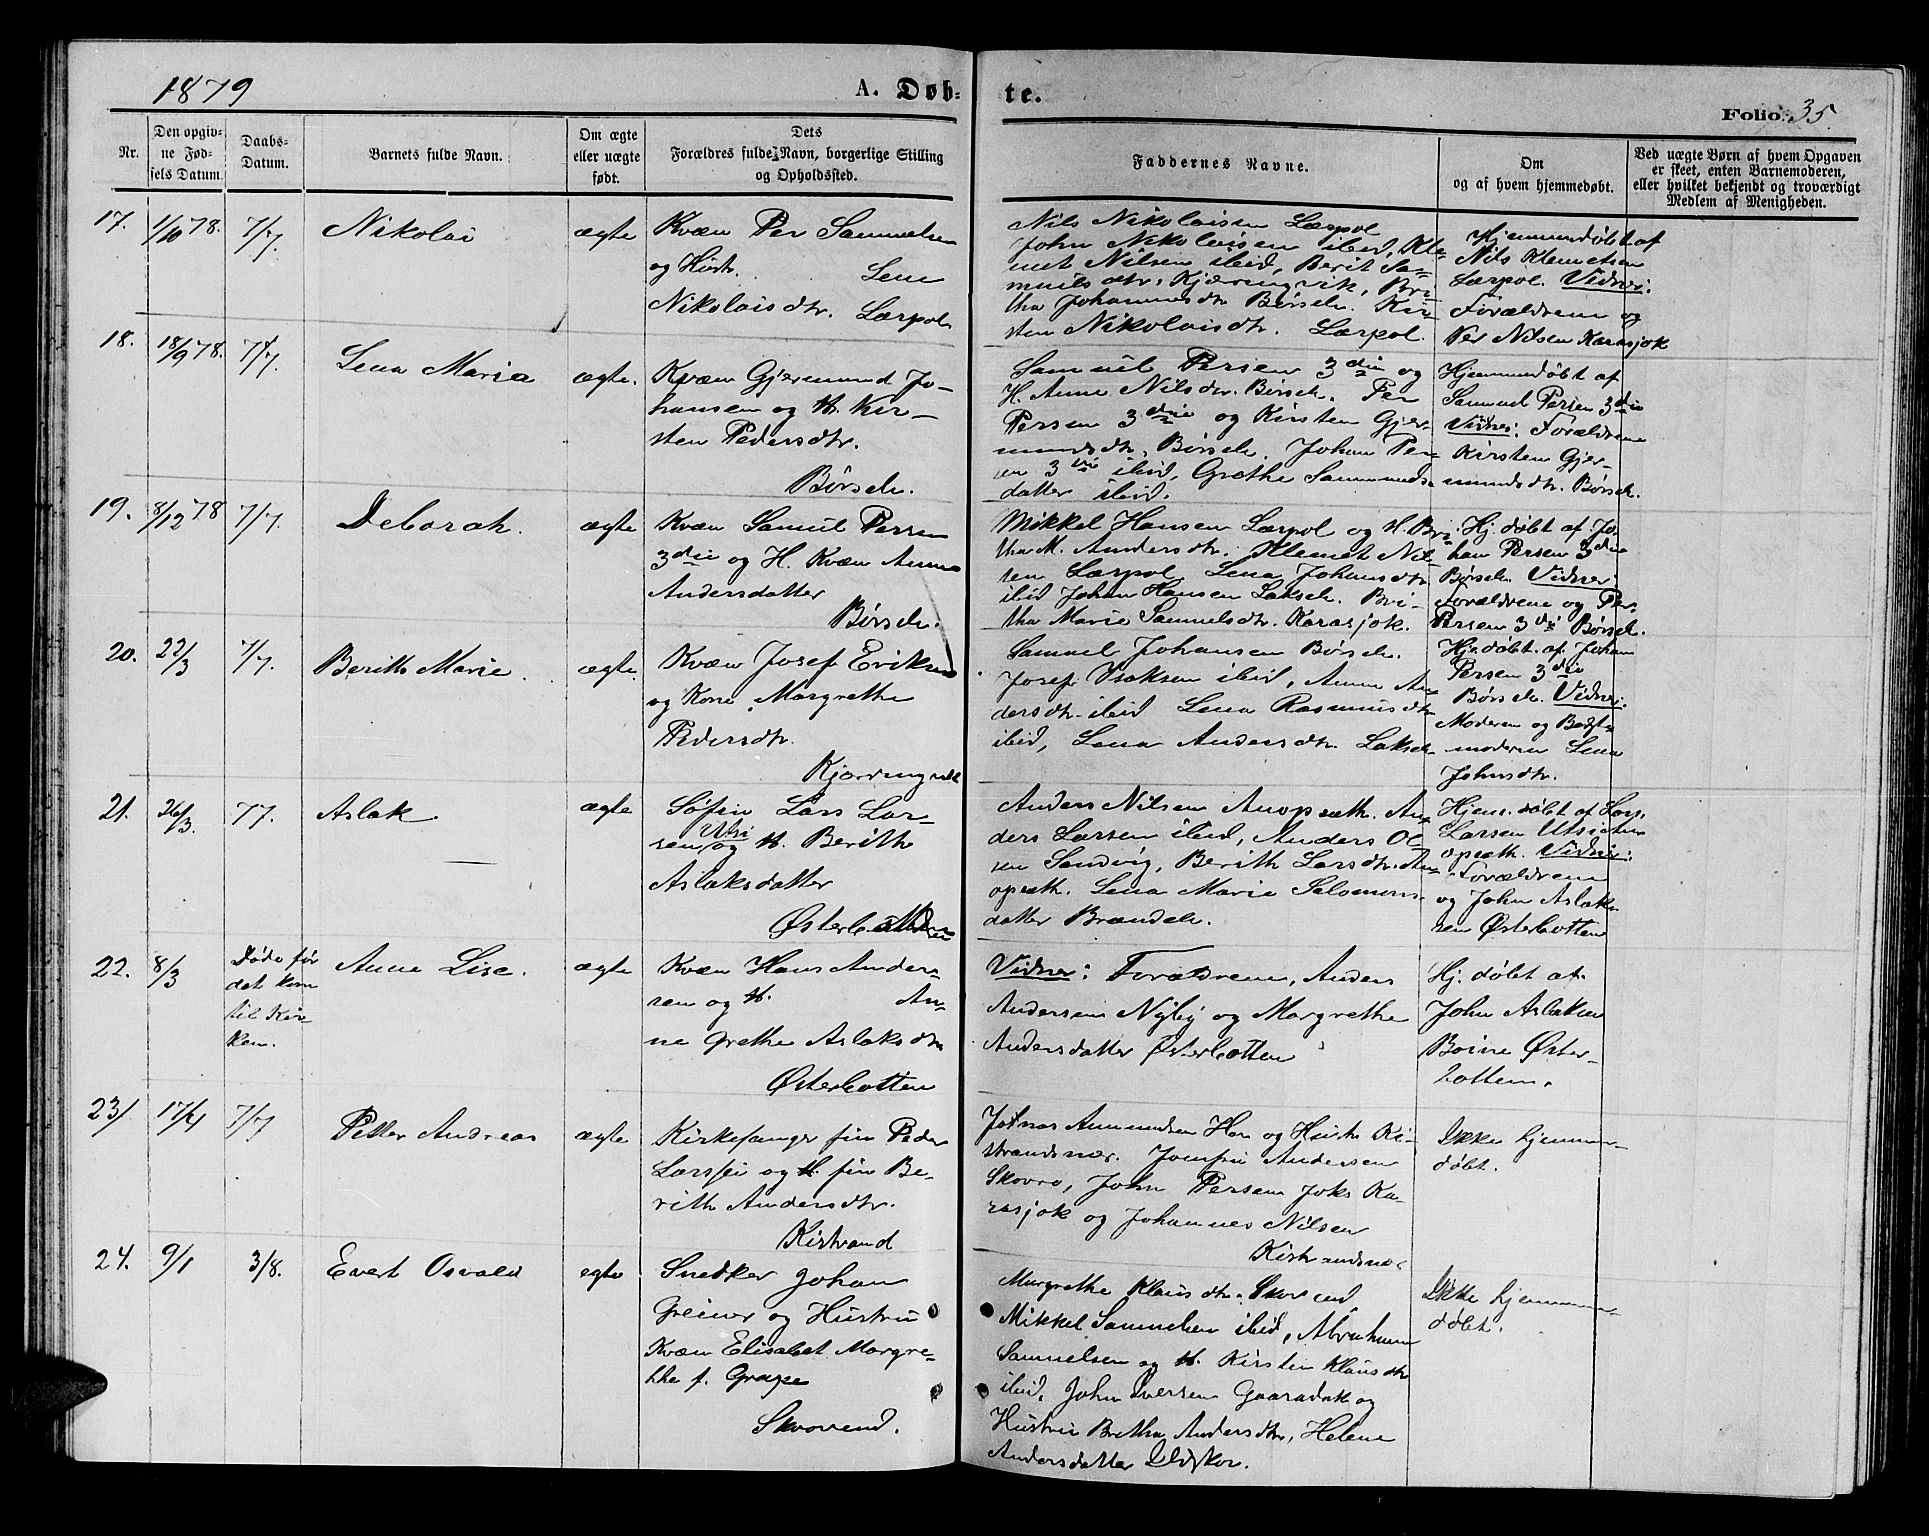 1879
A. Døb-
te.
Folio. 35.
Nr.
Den opgiv-
ne Fød-
sels Datum.
Daabs-
Datum.
Barnets fulde Navn.
Om ægte
eller uægte
født.
Dets
Forældres fulde Navn, borgerlige Stilling
og Opholdssted.
Faddernes Navne.
Om
og af hvem hjemmedøbt.
Ved uægte Børn af hvem Opgaven
er skeet, enten Barnemoderen,
eller hvilket bekjendt og troværdigt
Medlem af Menigheden.
17.
1/10 78.
7/7.
Nikolai
ægte
Kvæn Per Samuelsen
og Hustr. Lene
Nikolaisdtr. Lærpol.
Nils Nikolaisen Lærpol
John Nikolaisen ibid, Kle-
met Nilsen ibid, Berit Sa-
muelsdtr. Kjæringvik, Bri-
tha Johannesdtr Børselv. Kir-
sten Nikolaisdtr. Lærpol.
Hjemmedøbt af
Nils Klemetsen
Lærpol. Vidner:
Forældrene og
Per Nilsen Karasjok
18.
18/9 78.
7/7.
Lena Maria
ægte.
Kvæn Gjermund Jo-
hansen og H. Kir-
sten Pedersdtr.
Børselv.
Samuel Persen 3die og
H. Anne Nilsdtr. Børselv. Per
Persen 3die og Kirsten Gjer-
mundsdtr, Børselv. Johan Per-
sen 3die ibid, Grethe Sammunds-
datter ibid.
Hjemmedøbt af
Samuel Persen 3die
Vidner: Forældrene
Kirsten Gjer-
mundsdtr. Børselv.
19.
8/12 78
7/7.
Deborah.
ægte
Kvæn Samuel Persen
3die og H. Kvæn Anna
Andersdatter
Børselv.
Mikkel Hansen Lærpol og H. Bri-
tha M. Andersdtr. Klemet Nil-
sen Lærpol Lena Johansdtr
ibid Johan Hansen Lakselv. Bri-
tha Marie Samuelsdtr. Karasjok.
Hj. døbt af Jo-
han Persen 3die
Børselv. Vidner
Forældrene og Per
Persen 3die Børselv.
20.
22/3
7/7.
Berith Marie.
ægte.
Kvæn Josef Eriksen
og Kone, Margrethe
Pedersdtr.
Kjærringvik
Samuel Johansen Børselv.
Josef Isaksen ibid, Anna An-
dersdtr ibid Lena Rasmusdtr
ibid, Lena Andersdtr. Lakselv
Hj. døbt af Johan
Persen 3die
Børselv. Vidner:
Moderen og Bedste-
moderen Lena
Johnsdtr.
21.
26/3.
7/7.
Aslak.
ægte
Søfin Lars Lar-
sen Utsi og H. Berith
Aslaksdatter
Østerbotten
Anders Nilsen Anopsæth. An-
ders Larsen ibid, Anders Ol-
sen Sandvig, Berith Larsdtr. An-
opsæth. Lena Marie Salomons-
datter Brændelv.
Hjem. døbt af Lars
Larsen Utsi
opsæth. Vidner:
Forældrene
og John Aslak-
sen Østerbotten
22.
8/3
Døde før
det kom
til Kir-
ken.
Anne Lise.
ægte
Kvæn Hans Ander-
sen og H. An-
ne Grethe Aslaksdtr
Østerbotten
Vidner: Forældrene, Anders
Andersen Nyby og Margrethe
Andersdatter Østerbotten
Hj. døbt af
John Aslaksen
Boine Øster-
botten.
23.
17/4
7/7
Petter Andreas
ægte
Kirkesanger fin Peder
Larssen og H. fin Be-
rith Andersdtr.
Kistrand
Amundsen og Hustr Ki-
strandsnæs. Josefin Andersen
Skovro, John Persen Joks Ka-
rasjok og Johannes Nilsen
Kistrandsnæs
Ikke hjemme-
døbt.
24.
9/1
3/8.
Evert Osvald
egte
Snedker Johan
Greiner og Hustru
Kvæn Elisabet Margre-
the f. Grape
Skovend.
Margrethe Klausdtr. Skovend
Mikkel Samuelsen ibid, Abraham
Samuelsen og H. Kirsten Klausdtr
ibid, John Iversen Gaaradak og
Hustru Bretha Andersdtr, Helene
Andersdatter Oldskov.
Ikke hjemme-
døbt.